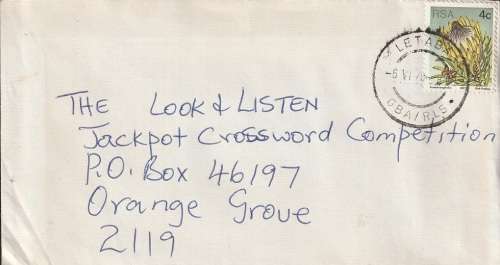 RSA 4c
LETABA
-6 VI 78
GBA/RLS
THE LOOK & LISTEN
Jackpot Crossword Competition
P.O. Box 46197
Orange Grove
2119